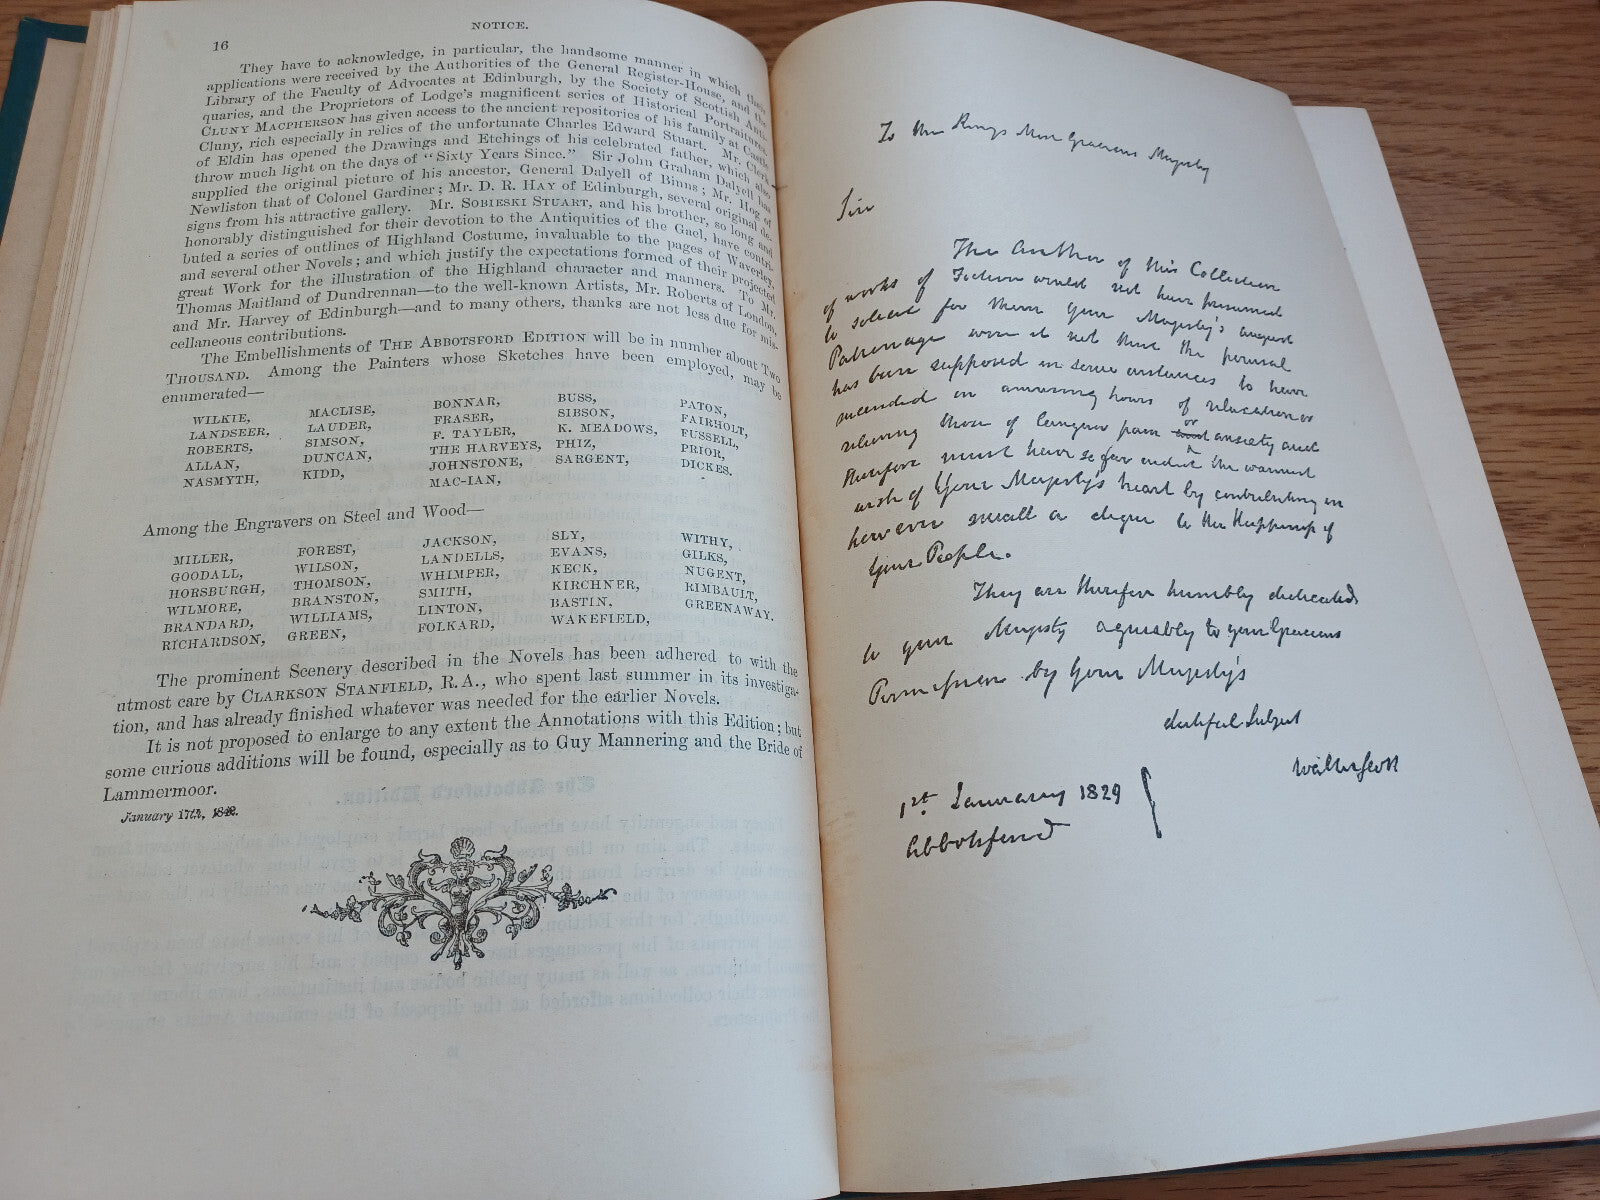 16
NOTICE.
They have to acknowledge, in particular, the handsome manner in which their
applications were received by the Authorities of the General Register-House, and the
Library of the Faculty of Advocates at Edinburgh, by the Society of Scottish Anti-
quaries, and the Proprietors of Lodge's magnificent series of Historical Portraitures.
CLUNY MACPHERSON has given access to the ancient repositories of his family at Castle
Cluny, rich especially in relics of the unfortunate Charles Edward Stuart. Mr. Clerk
of Eldin has opened the Drawings and Etchings of his celebrated father, which also
throw much light on the days of "Sixty Years Since." Sir John Graham Dalyell has
supplied the original picture of his ancestor, General Dalyell of Binns; Mr. Hog of
Newliston that of Colonel Gardiner; Mr. D. R. HAY of Edinburgh, several original de-
signs from his attractive gallery. Mr. SOBIESKI STUART, and his brother, so long and
honorably distinguished for their devotion to the Antiquities of the Gael, have contri-
buted a series of outlines of Highland Costume, invaluable to the pages of Waverley,
and several other Novels; and which justify the expectations formed of their projected
great Work for the illustration of the Highland character and manners. To Mr.
Thomas Maitland of Dundrennan—to the well-known Artists, Mr. Roberts of London,
and Mr. Harvey of Edinburgh—and to many others, thanks are not less due for mis-
cellaneous contributions.
The Embellishments of THE ABBOTSFORD EDITION will be in number about Two
THOUSAND. Among the Painters whose Sketches have been employed, may be
enumerated—
WILKIE, MACLISE, BONNAR, BUSS, PATON,
LANDSEER, LAUDER, FRASER, SIBSON, FAIRHOLT,
ROBERTS, SIMSON, F. TAYLER, K. MEADOWS, FUSSELL,
ALLAN, DUNCAN, THE HARVEYS, PHIZ, PRIOR,
NASMYTH, KIDD, JOHNSTONE, SARGENT, DICKES.
MAC-IAN,
Among the Engravers on Steel and Wood—
MILLER, FOREST, JACKSON, SLY, WITHY,
GOODALL, WILSON, LANDELLS, EVANS, GILKS,
HORSBURGH, THOMSON, WHIMPER, KECK, NUGENT,
WILMORE, BRANSTON, SMITH, KIRCHNER, RIMBAULT,
BRANDARD, WILLIAMS, LINTON, BASTIN, GREENAWAY.
RICHARDSON, GREEN, FOLKARD, WAKEFIELD,
The prominent Scenery described in the Novels has been adhered to with the
utmost care by CLARKSON STANFIELD, R.A., who spent last summer in its investiga-
tion, and has already finished whatever was needed for the earlier Novels.
It is not proposed to enlarge to any extent the Annotations with this Edition; but
some curious additions will be found, especially as to Guy Mannering and the Bride of
Lammermoor.
January 17th, 1842.
To the Kings Most Gracious Majesty
Sire
The Author of this Collection
of works of Fiction would not have presumed
to solicit for them your Majesty's august
Patronage were it not that the perusal
has been supposed in some instances to have
succeeded in amusing hours of relaxation or
relieving those of languor pain or anxiety and
therefore must have so far aided the warmest
wish of Your Majesty's heart by contributing in
however small a degree to the Happiness of
Your People.
They are therefore humbly dedicated
to your Majesty agreeably to your Gracious
Permission by Your Majesty's
dutiful Subject
Walter Scott
1st January 1829
Abbotsford